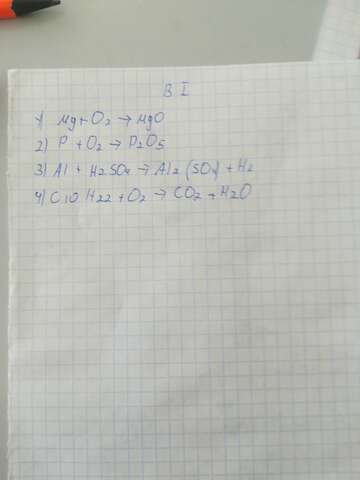 В I
1) Mg + O₂ → MgO
2) P + O₂ → P₂O₅
3) Al + H₂SO₄ → Al₂(SO₄) + H₂
4) C10 H22 + O₂ → CO₂ + H₂O